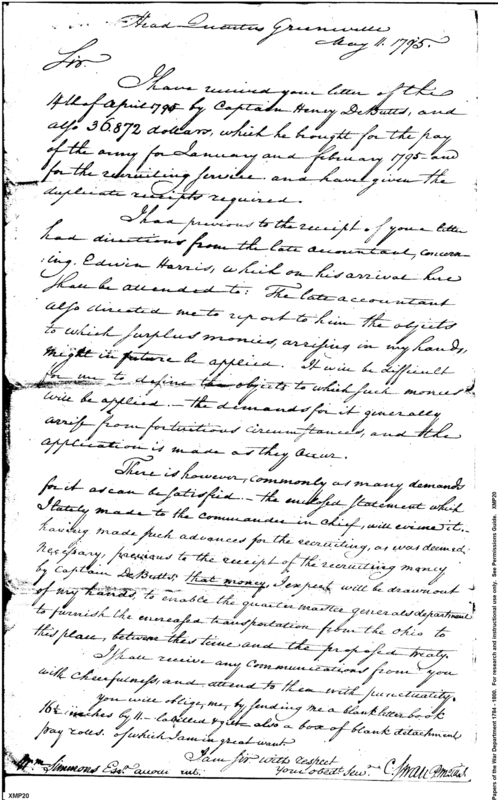 Head Quarters Greenville
May 11. 1795.
Sir.
I have received your letter of the
14th of April 1795 by Captain Henry DeButts, and
also 36.872 dollars, which he brought for the pay
of the army for January and february 1795 and
for the recruiting service and have given the
duplicate receipts required.
I had previous to the receipt of your letter
had directions from the late accountant, concern
ing Edwin Harris, which on his arrival here
shall be attended to: The late accountant
also directed me to report to him the objects
to which surplus monies, arrising in my hands,
might in future be applied. It will be difficult
for me to define the objects to which such monies
will be applied - the demands for it generally
arrise from fortuitous circumstances, and the
application is made as they occur.
There is however, commonly as many demands
for it as can be satisfied - the enclosed statement which
I lately made to the commander in Chief, will evince it.
having made such advances for the recruiting, as was deemed
necessary, previous to the receipt of the recruiting money
by Captain DeButts, that money, I expect will be drawn out
of my hands, to enable the quarter master generals department
to furnish the encreased transportation from the Ohio to
this place, between this time and the proposed treaty.
I shall receive any communications from you
with cheerfulness, and attend to them with punctuality.
You will oblige, me, by sending me a blank letter book
16½ inches by 11 - labelled also a box of blank detachment
pay rolls. of which I am in great want
I am Sir with respect
Wm Simmons Esqr. Your obedt. Serv. C. Swan
XMP20
Papers of the War Department 1784 - 1800. For research and instructional use only. See Permissions Guide. XMP20